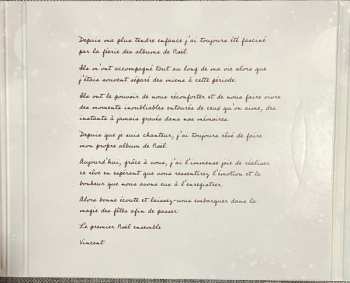 Depuis ma plus tendre enfance j'ai toujours été fasciné
par la féerie des albums de Noël.
Ils m'ont accompagné tout au long de ma vie alors que
j'étais souvent séparé des miens à cette période.
Ils ont le pouvoir de nous réconforter et de nous faire vivre
des moments inoubliables entourés de ceux qu'on aime, des
instants à jamais gravés dans nos mémoires.
Depuis que je suis chanteur, j'ai toujours rêvé de faire
mon propre album de Noël.
Aujourd'hui, grâce à vous, j'ai l'immense joie de réaliser
ce rêve en espérant que vous ressentirez l'émotion et le
bonheur que nous avons eus à l'enregistrer.
Alors bonne écoute et laissez-vous embarquer dans la
magie des fêtes afin de passer
Le premier Noël ensemble
Vincent